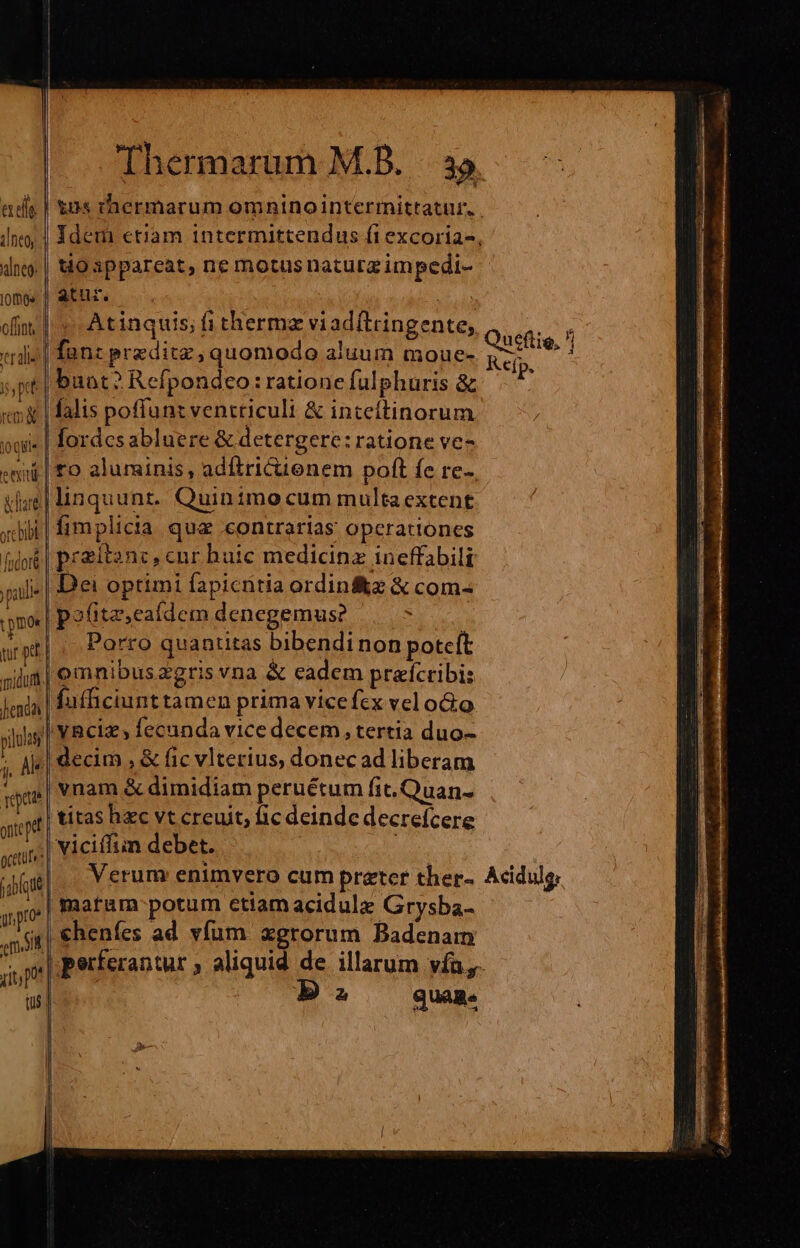 Thermarum M.B. 39
tus thermarum omnino intermittatur.
Idem etiam intermittendus ſi excoria-
tio appareat, ne motus naturæ impedi-
atur.
At inquis; ſi thermæ vi adſtringente,
ſunt præditæ, quomodo aluum moue-
Queſtio.
bunt? Reſpondeo: ratione ſulphuris &
Reſp.
ſalis poſſunt ventriculi & inteſtinorum
ſordes abluere & detergere: ratione ve-
ro aluminis, adſtrictionem poſt ſe re-
linquunt. Quinimo cum multa extent
ſimplicia quæ contrarias operationes
præſtant, cur huic medicinæ ineffabili
Dei optimi ſapientia ordinatæ & com-
poſitæ, eaſdem denegemus?
Porro quantitas bibendi non poteſt
omnibus ægris vna & eadem præſcribi:
ſufficiunt tamen prima vice ſex vel octo
vnciæ, ſecunda vice decem, tertia duo-
decim, & ſic vlterius, donec ad liberam
vnam & dimidiam peruētum ſit. Quan-
titas hæc vt creuit, ſic deinde decreſcere
viciſſim debet.
Verum enimvero cum præter ther-
Acidulæ
marum potum etiam acidulæ Grysba-
chenſes ad vſum ægrorum Badenam
perferantur, aliquid de illarum vſu,
D 2 quan-